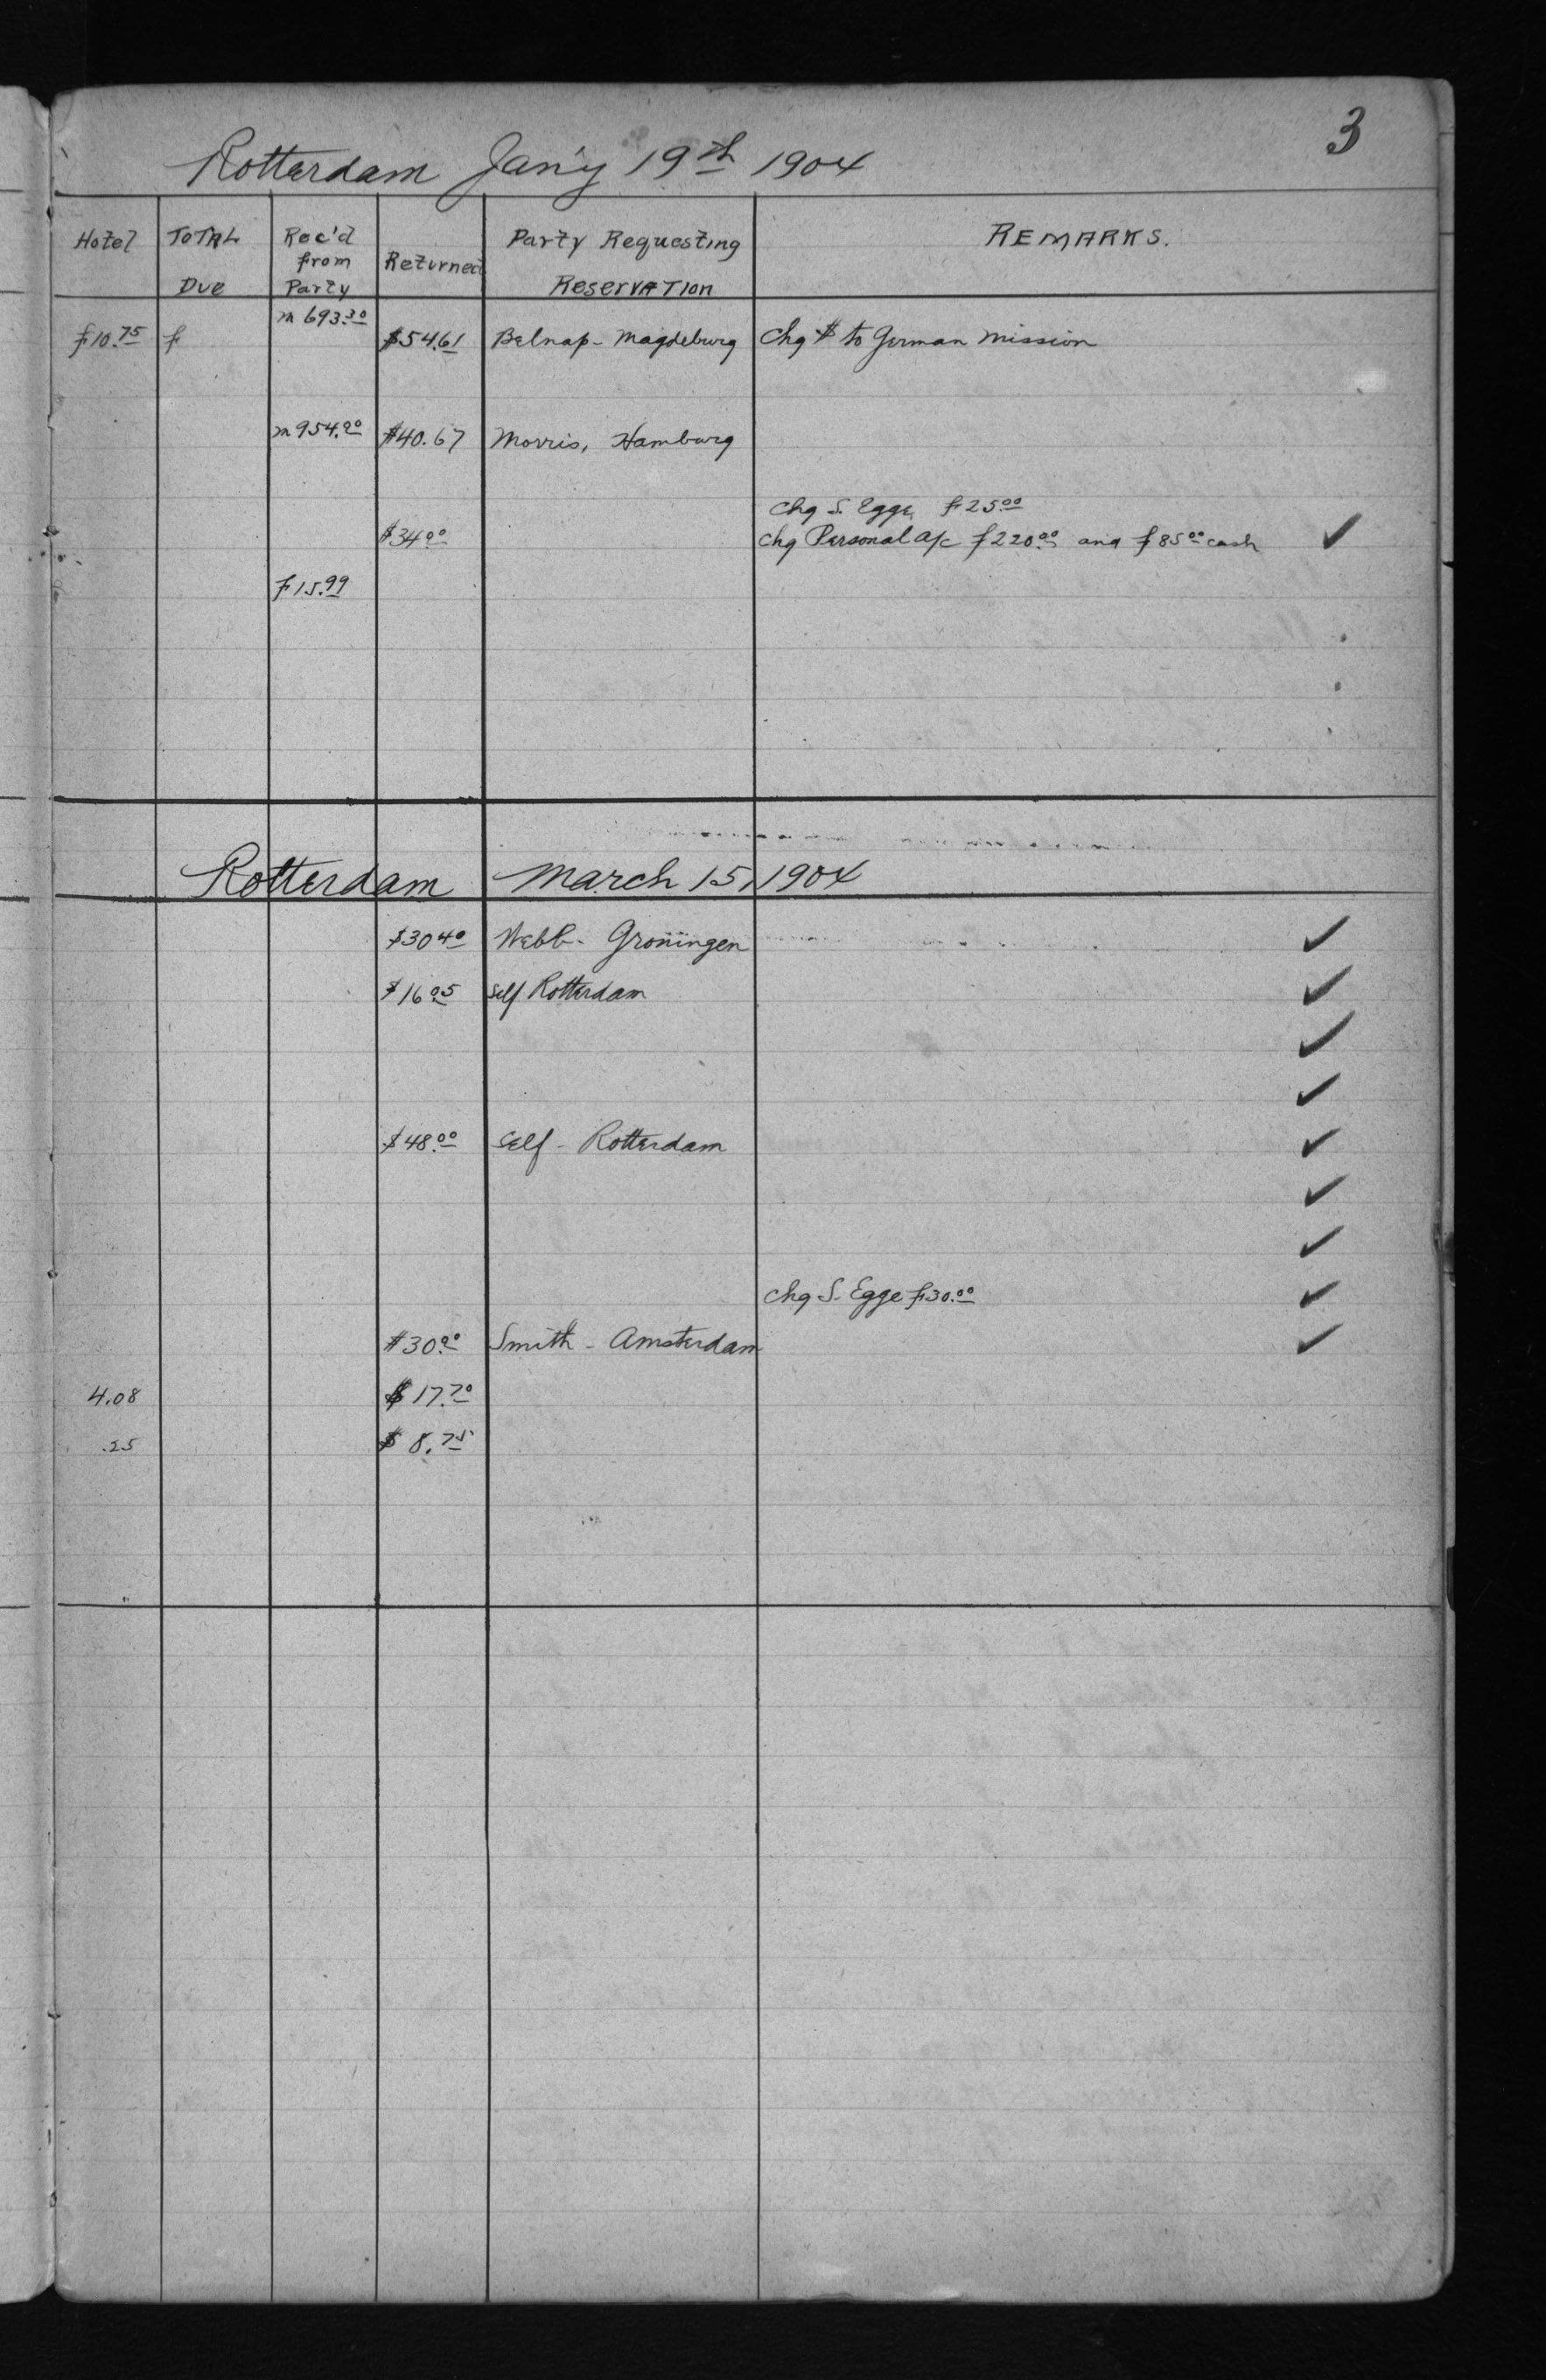 3
Rotterdam Jan'y 19th 1904
Hotel TOTAL Due Rec'd from Party Returned Party Requesting Reservation REMARKS.
f10.75 f m 693.30 $54.61 Belnap - Magdeburg Chg $ to German Mission
m 954.90 $40.67 Morris, Hamburg
Chg S. Egge f25.00
$34.00 Chg Personal a/c f220.00 and f85.00 cash ✓
f15.99
Rotterdam March 15, 1904
$30.40 Webb - Groningen ✓
$16.05 Self Rotterdam ✓
✓
✓
$48.00 Self - Rotterdam ✓
✓
✓
Chg S. Egge f30.00 ✓
$30.90 Smith - Amsterdam ✓
4.08 $17.70
.25 $8.75